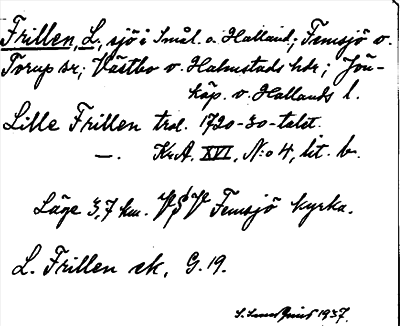 Frillen, L., sjö i Smål. o. Halland; Femsjö o.
Torup sr; Västbo o. Halmstads hdr; Jön-
köp. o. Hallands l.
Lille Frillen trol. 1720-30-talet.
—. Kr.A. XVI, N:o 4, lit. b.
Läge 3,7 km. VSV Femsjö kyrka.
L. Frillen ek. G. 19.
1937.